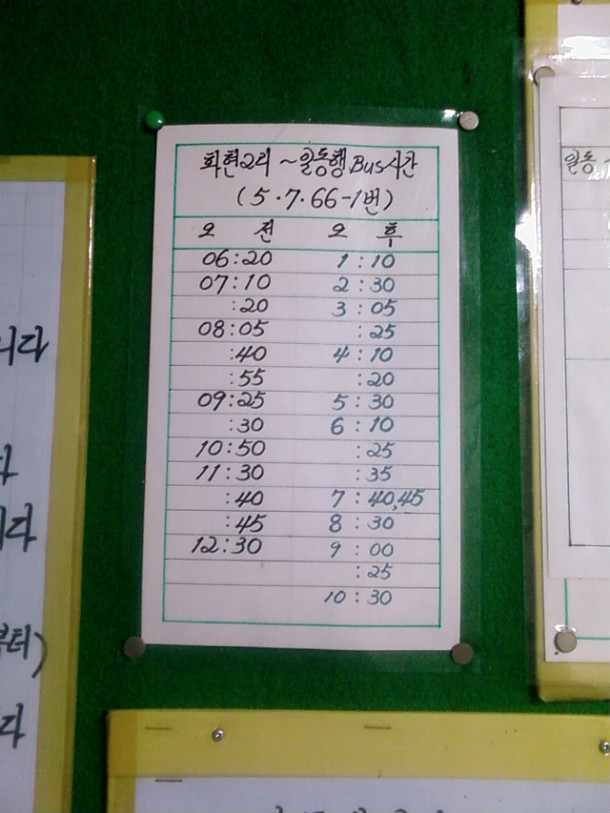 화현2리 ~일동행 Bus시간
(5·7·66-1번)
오 전 오 후
06:20 1:10
07:10 2:30
:20 3:05
08:05 :25
:40 4:10
:55 :20
09:25 5:30
:30 6:10
10:50 :25
11:30 :35
:40 7:40,45
:45 8:30
12:30 9:00
:25
10:30
일동
니다
다
니다
부터)
다